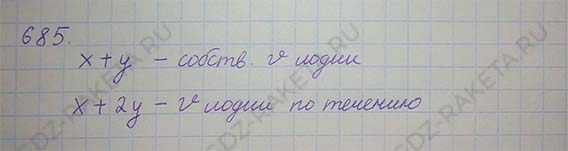 685.
x + y – собств. v лодки
x + 2y – v лодки по течению
GDZ-RAKETA.RU